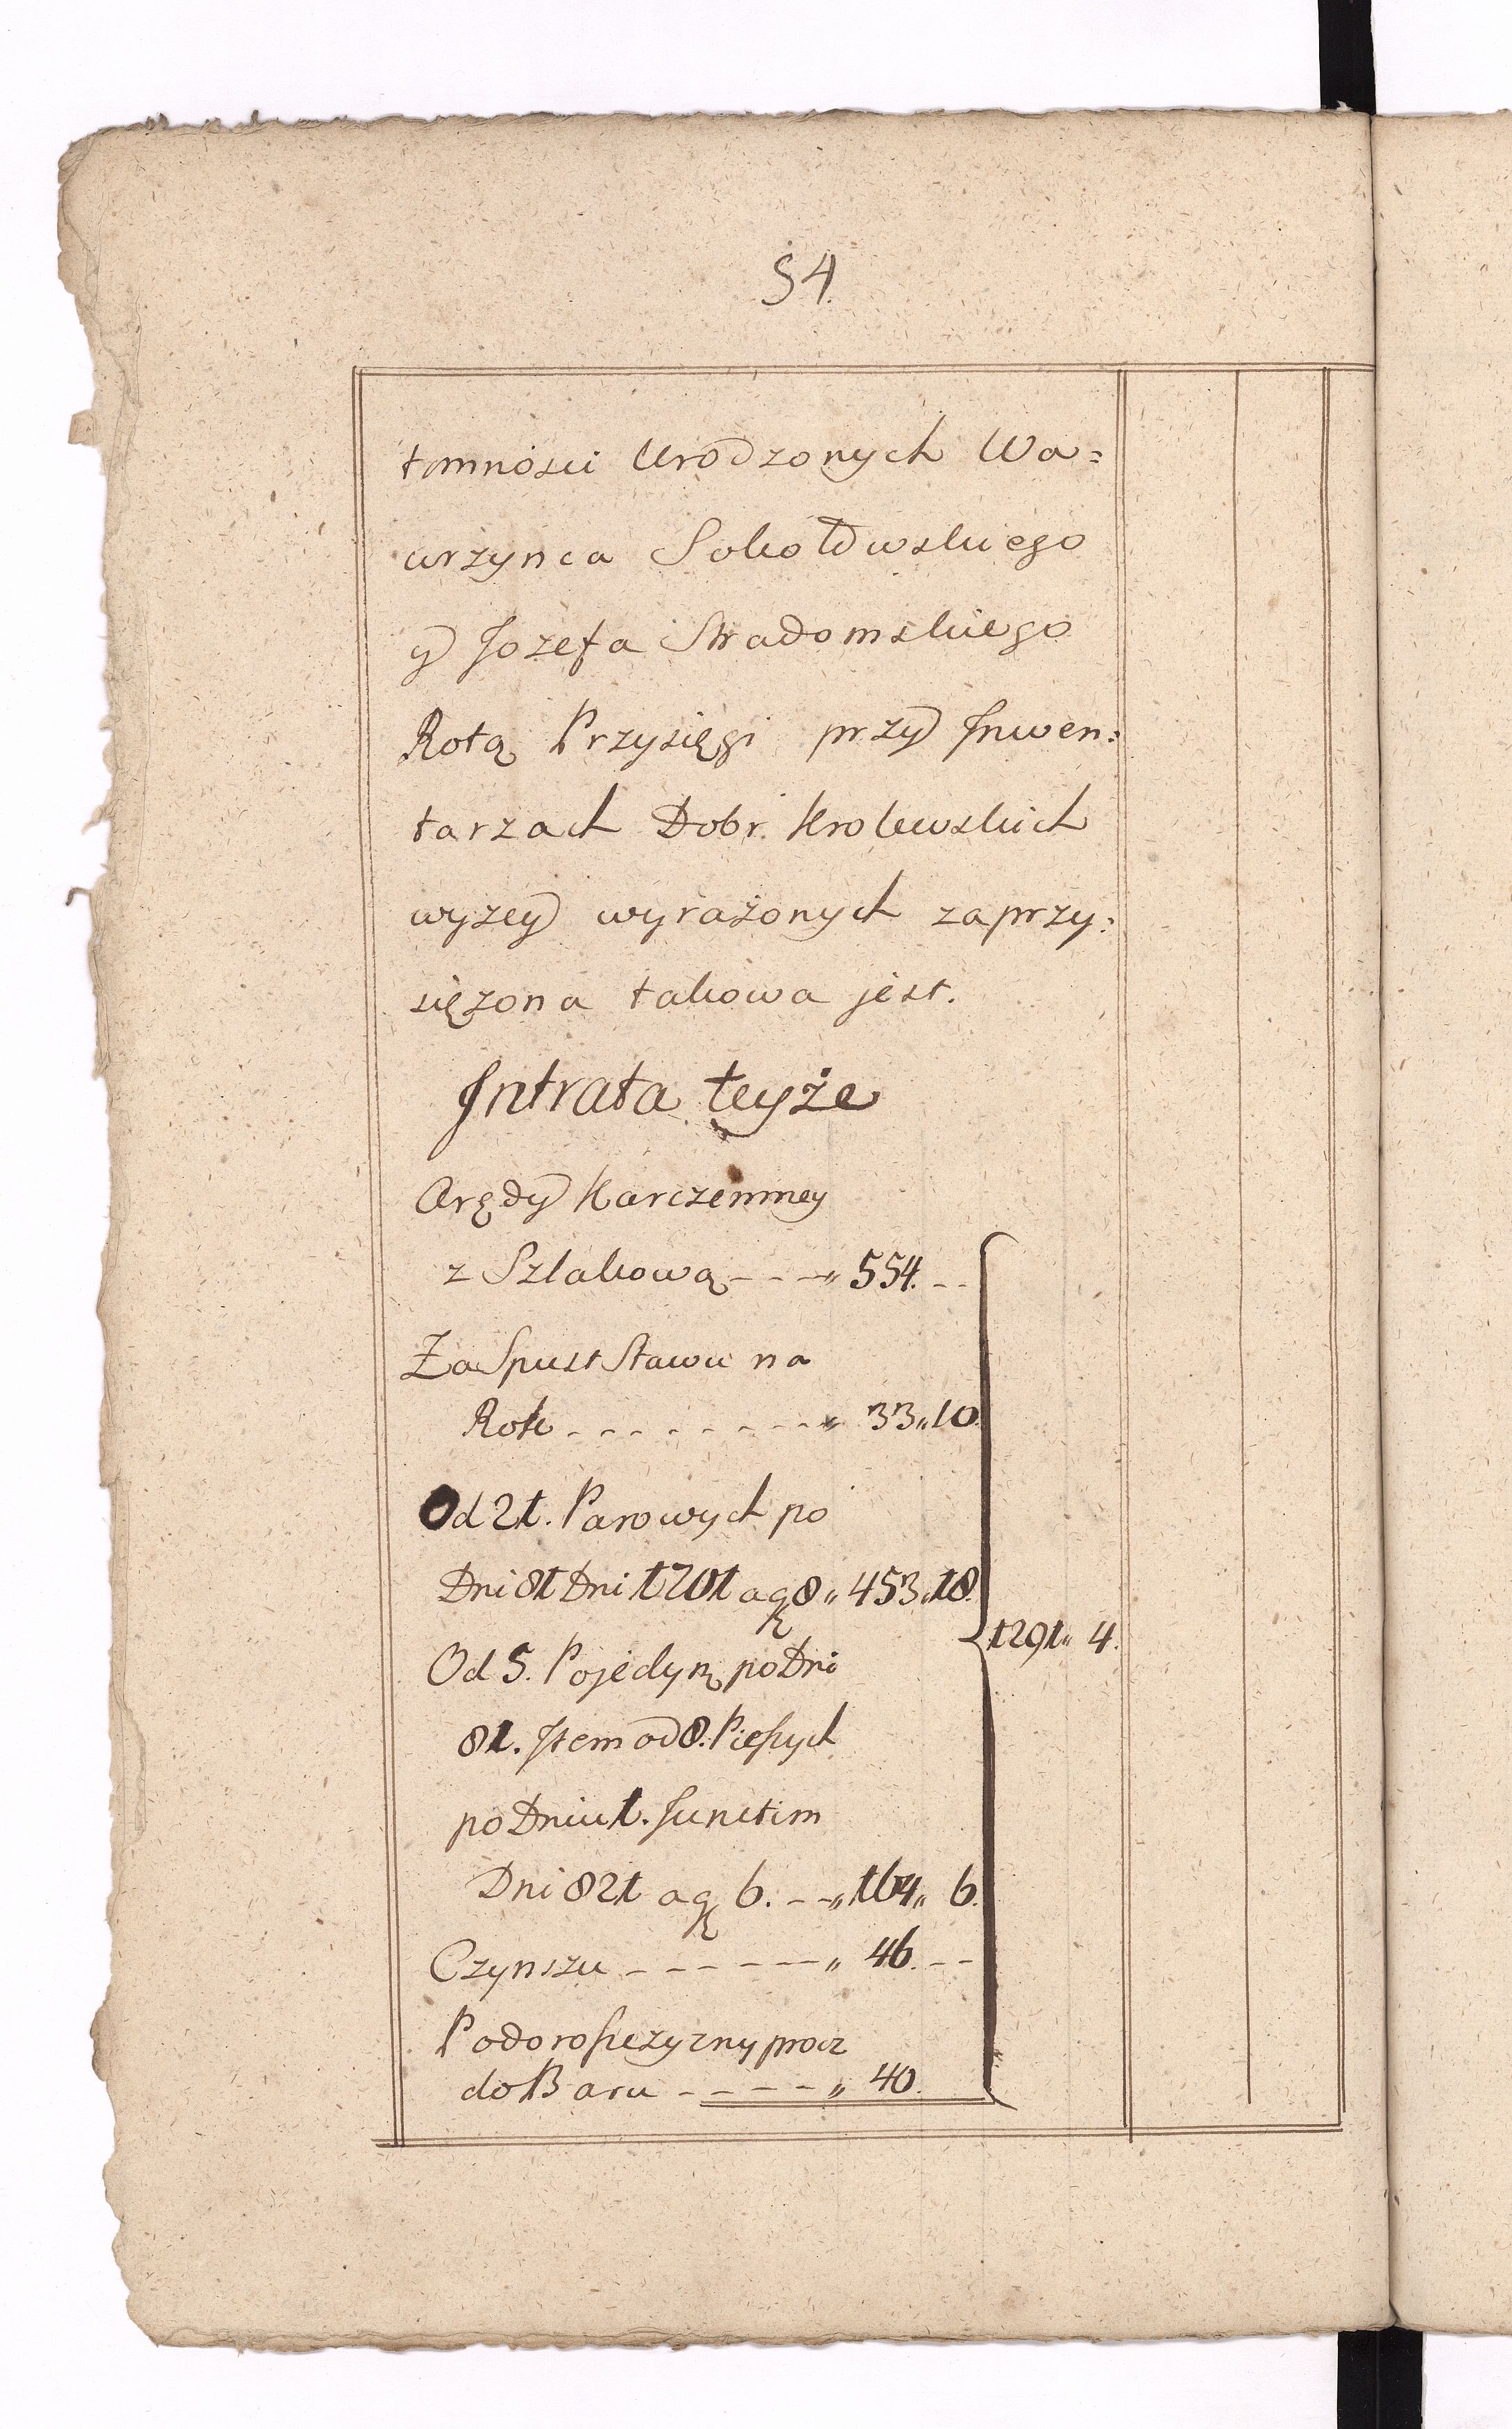 54.
tomności Urodzonych Wa=
wrzynca Sokołowskiego
y Jozefa Stradomskiego
Rotą Przysięgi przy Inwen:
tarzach Dobr Krolewskich
wyzey wyrażonych zaprzy:
sięzona takowa jest.
Intrata teyże
Arędy Karczemney
z Szlakową - - - „ 554. - -
Za Spust Stawu na
Rok - - - - - - - „ 33 „ 10.
Od 21. Parowych po
Dni 81 Dni 1701 a gł 8 „ 453 „ 18.
1291 „ 4.
Od 5. Pojedyn po Dni
81. Item od 8. Pieszych
po Dniu 1. Junctim
Dni 821 a gł 6. - - „ 164 „ 6.
Czynszu - - - - - „ 46. - -
Podoroszczyzny procz
do Baru - - - - - „ 40.